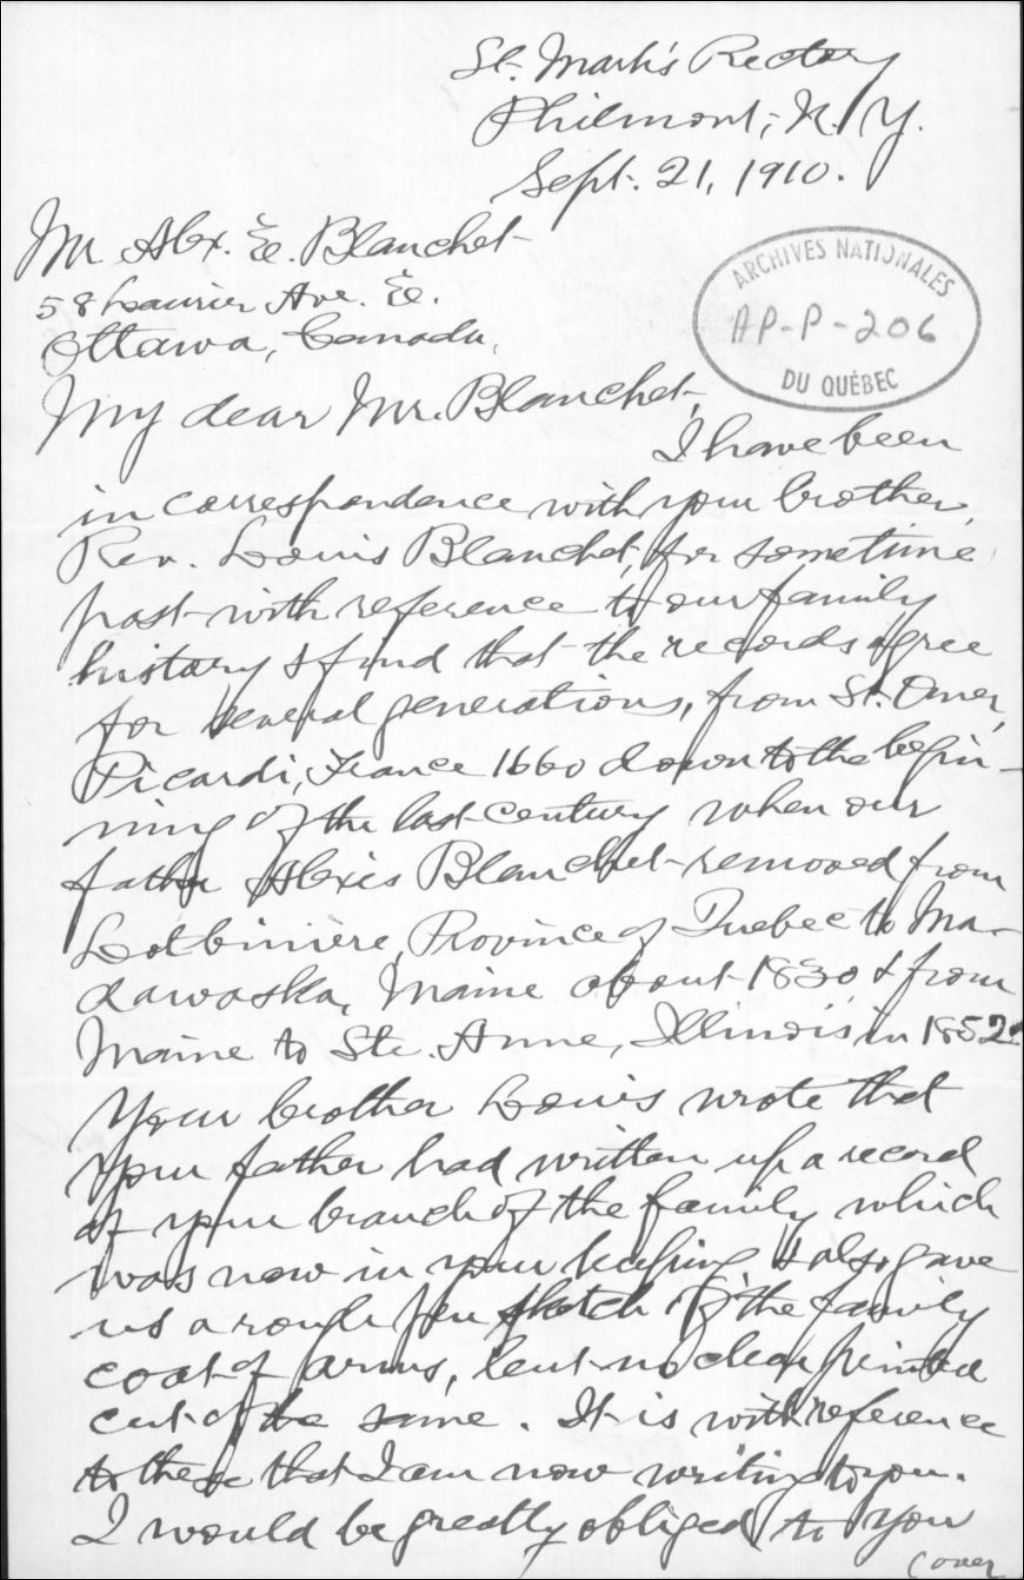 St. Mark's Rectory
Philmont, N. Y.
Sept. 21, 1910.
Mr Alex. E. Blanchet
58 Laurier Ave. E.
Ottawa, Canada,
ARCHIVES NATIONALES
AP-P-206
DU QUÉBEC
My dear Mr. Blanchet,
I have been
in correspondence with your brother,
Rev. Louis Blanchet, for sometime
past with reference to our family
history & find that the records agree
for several generations, from St. Omer,
Picardi, France 1660 down to the begin-
ning of the last century when our
father Alexis Blanchet removed from
Lotbinière, Province of Quebec to Ma-
dawaska, Maine about 1830 & from
Maine to Ste. Anne, Illinois in 1852.
Your brother Louis wrote that
your father had written up a record
of your branch of the family which
was now in your keeping & also gave
us a rough pen sketch of the family
coat of arms, but no clear printed
cut of the same. It is with reference
to these that I am now writing to you.
I would be greatly obliged to you
(over